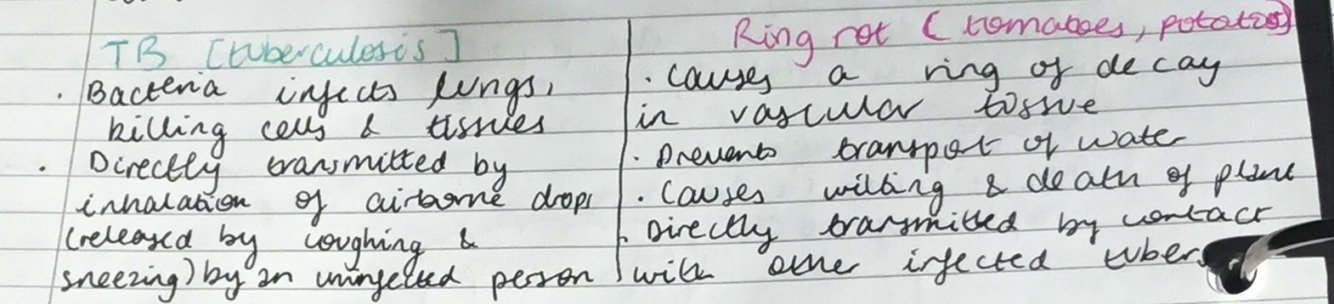 TB [tuberculosis]
. Bacteria infects lungs,
killing cells & tissues
. Directly transmitted by
inhalation of airborne drops
(released by coughing &
sneezing) by an uninfected person
Ring rot (tomatoes, potatos)
. causes a ring of decay
in vascular tissue
. Prevents transport of water
. Causes wilting & death of plant
. Directly transmitted by contact
with other infected tubers